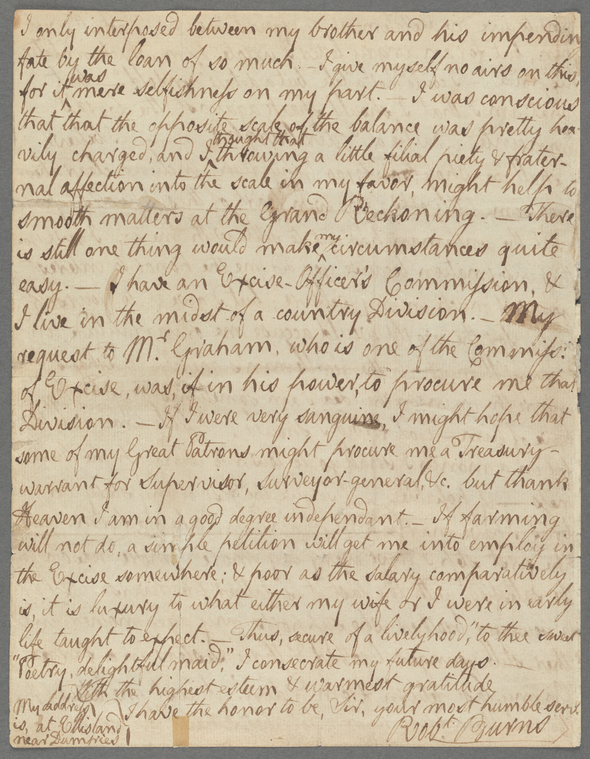 I only interposed between my brother and his impendin
fate by the loan of so much. — I give myself no airs on this,
for it was mere selfishness on my part. — I was conscious
that that the opposite scale of the balance was pretty hea-
vily charged, and I thought that throwing a little filial piety & frater-
nal affection into the scale in my favor, might help to
smooth matters at the Grand Reckoning. — There
is still one thing would make my circumstances quite
easy. — I have an Excise-Officer's Commission, &
I live in the midst of a country Division. — My
request to Mr. Graham, who is one of the Commiss:
of Excise, was, if in his power, to procure me that
Division. — If I were very sanguine, I might hope that
some of my Great Patrons might procure me a Treasury-
warrant for Supervisor, Surveyor-general, &c. but thank
Heaven I am in a good degree independant. — If farming
will not do, a simple petition will get me into employ in
the Excise somewhere; & poor as the salary comparatively
is, it is luxury to what either my wife or I were in early
life taught to expect. — Thus, secure of a livelyhood, "to thee sweet
"Poetry, delightful maid," I consecrate my future days. —
With the highest esteem & warmest gratitude
I have the honor to be, Sir, your most humble serv.
Robt. Burns
My address
is, at Ellisland
near Dumfries